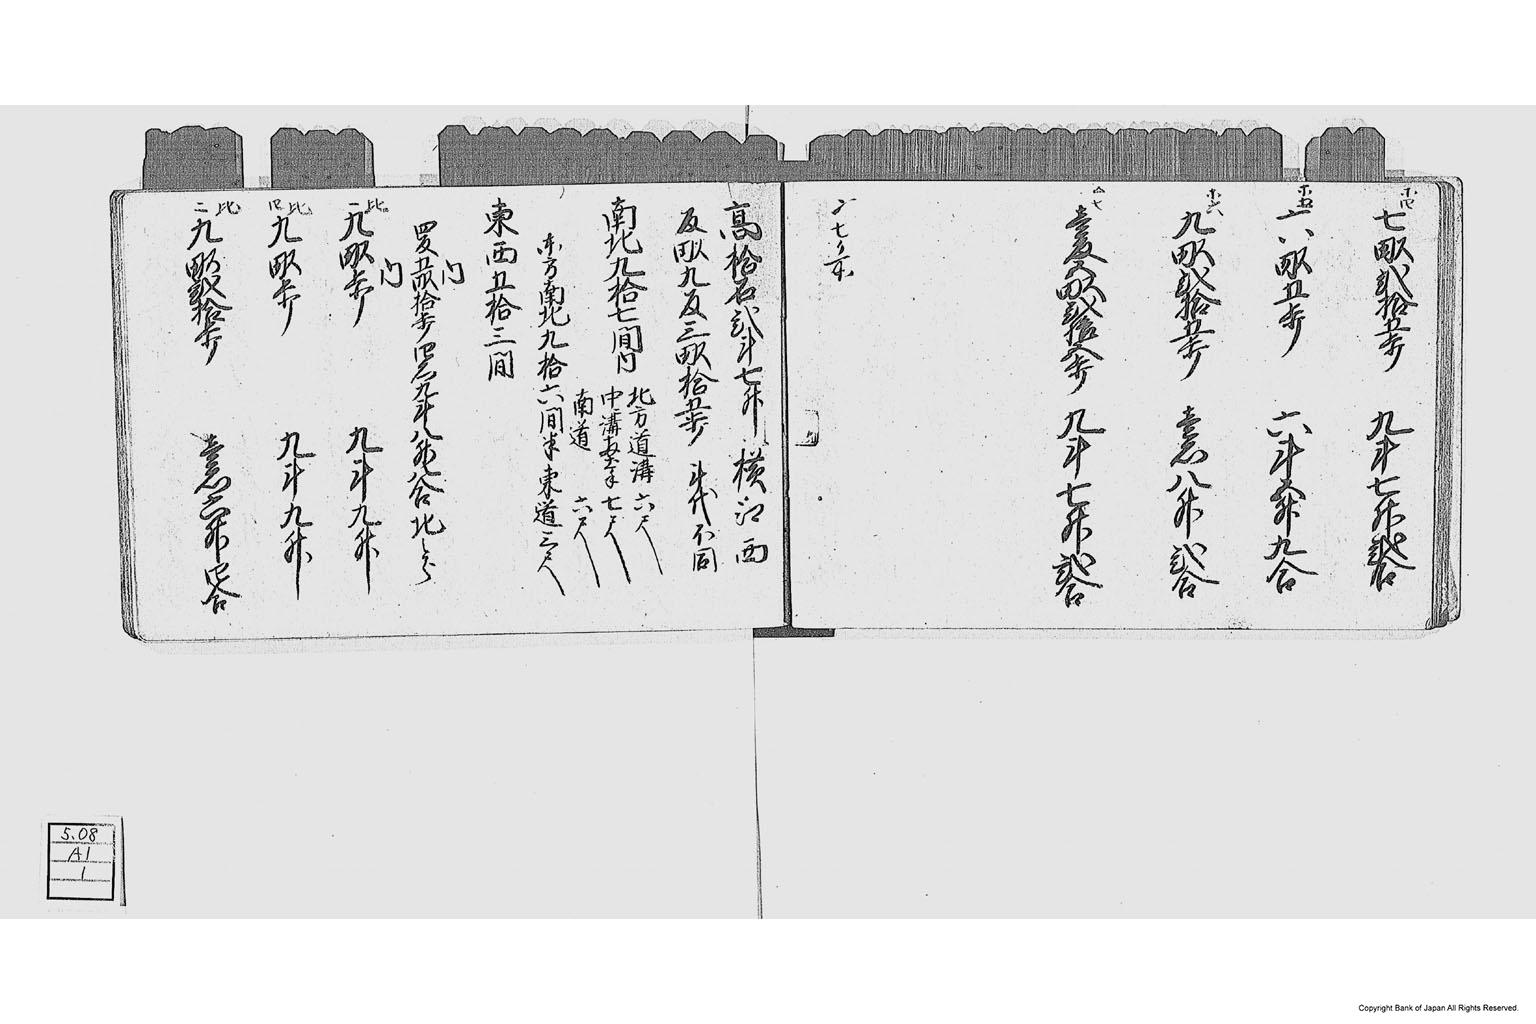 七畝弐拾五歩 九斗七升弐合
六畝五歩 六斗五升九合
九畝弐拾五歩 壱石八升弐合
壱反五畝弐拾五歩 九斗七升弐合
高拾石弐斗七升 横江西
反畝九反三畝拾五歩 斗代不同
南北九拾七間内
北方道溝 六尺
中溝 七尺
南道 六尺
東方南北九拾六間半 東道三尺
東西五拾三間
内
四反五畝拾歩 四石九斗八升八合 北
内
北一
九畝歩 九斗九升
北
九畝歩 九斗九升
北二
九畝弐拾歩 壱石六升四合
5.08
A1
1
Copyright Bank of Japan All Rights Reserved.